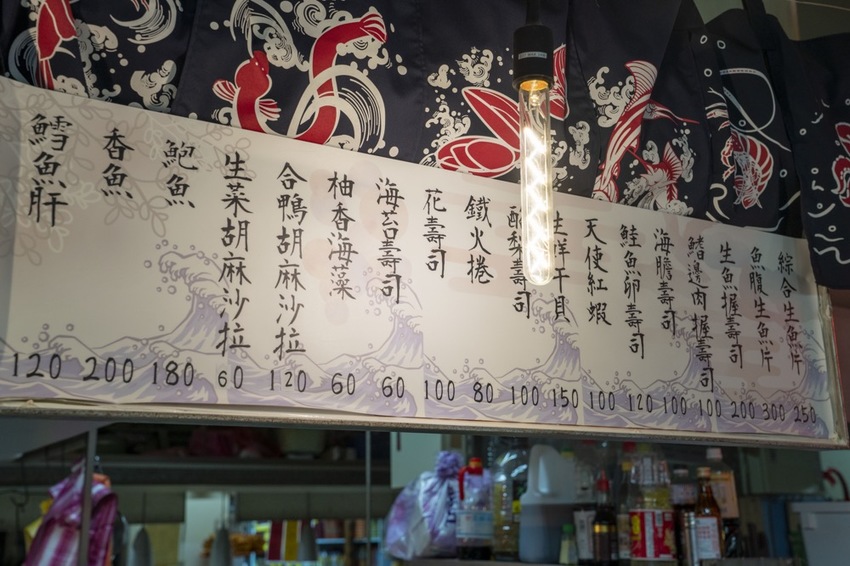 綜合生魚片 250
魚腹生魚片 300
生魚握壽司 200
鰭邊肉握壽司 100
海膽壽司 100
鮭魚卵壽司 120
天使紅蝦 100
生鮮干貝 150
酪梨壽司 100
鐵火捲 80
花壽司 100
海苔壽司 60
柚香海藻 60
合鴨胡麻沙拉 120
生菜胡麻沙拉 60
鮑魚 180
香魚 200
鱈魚肝 120